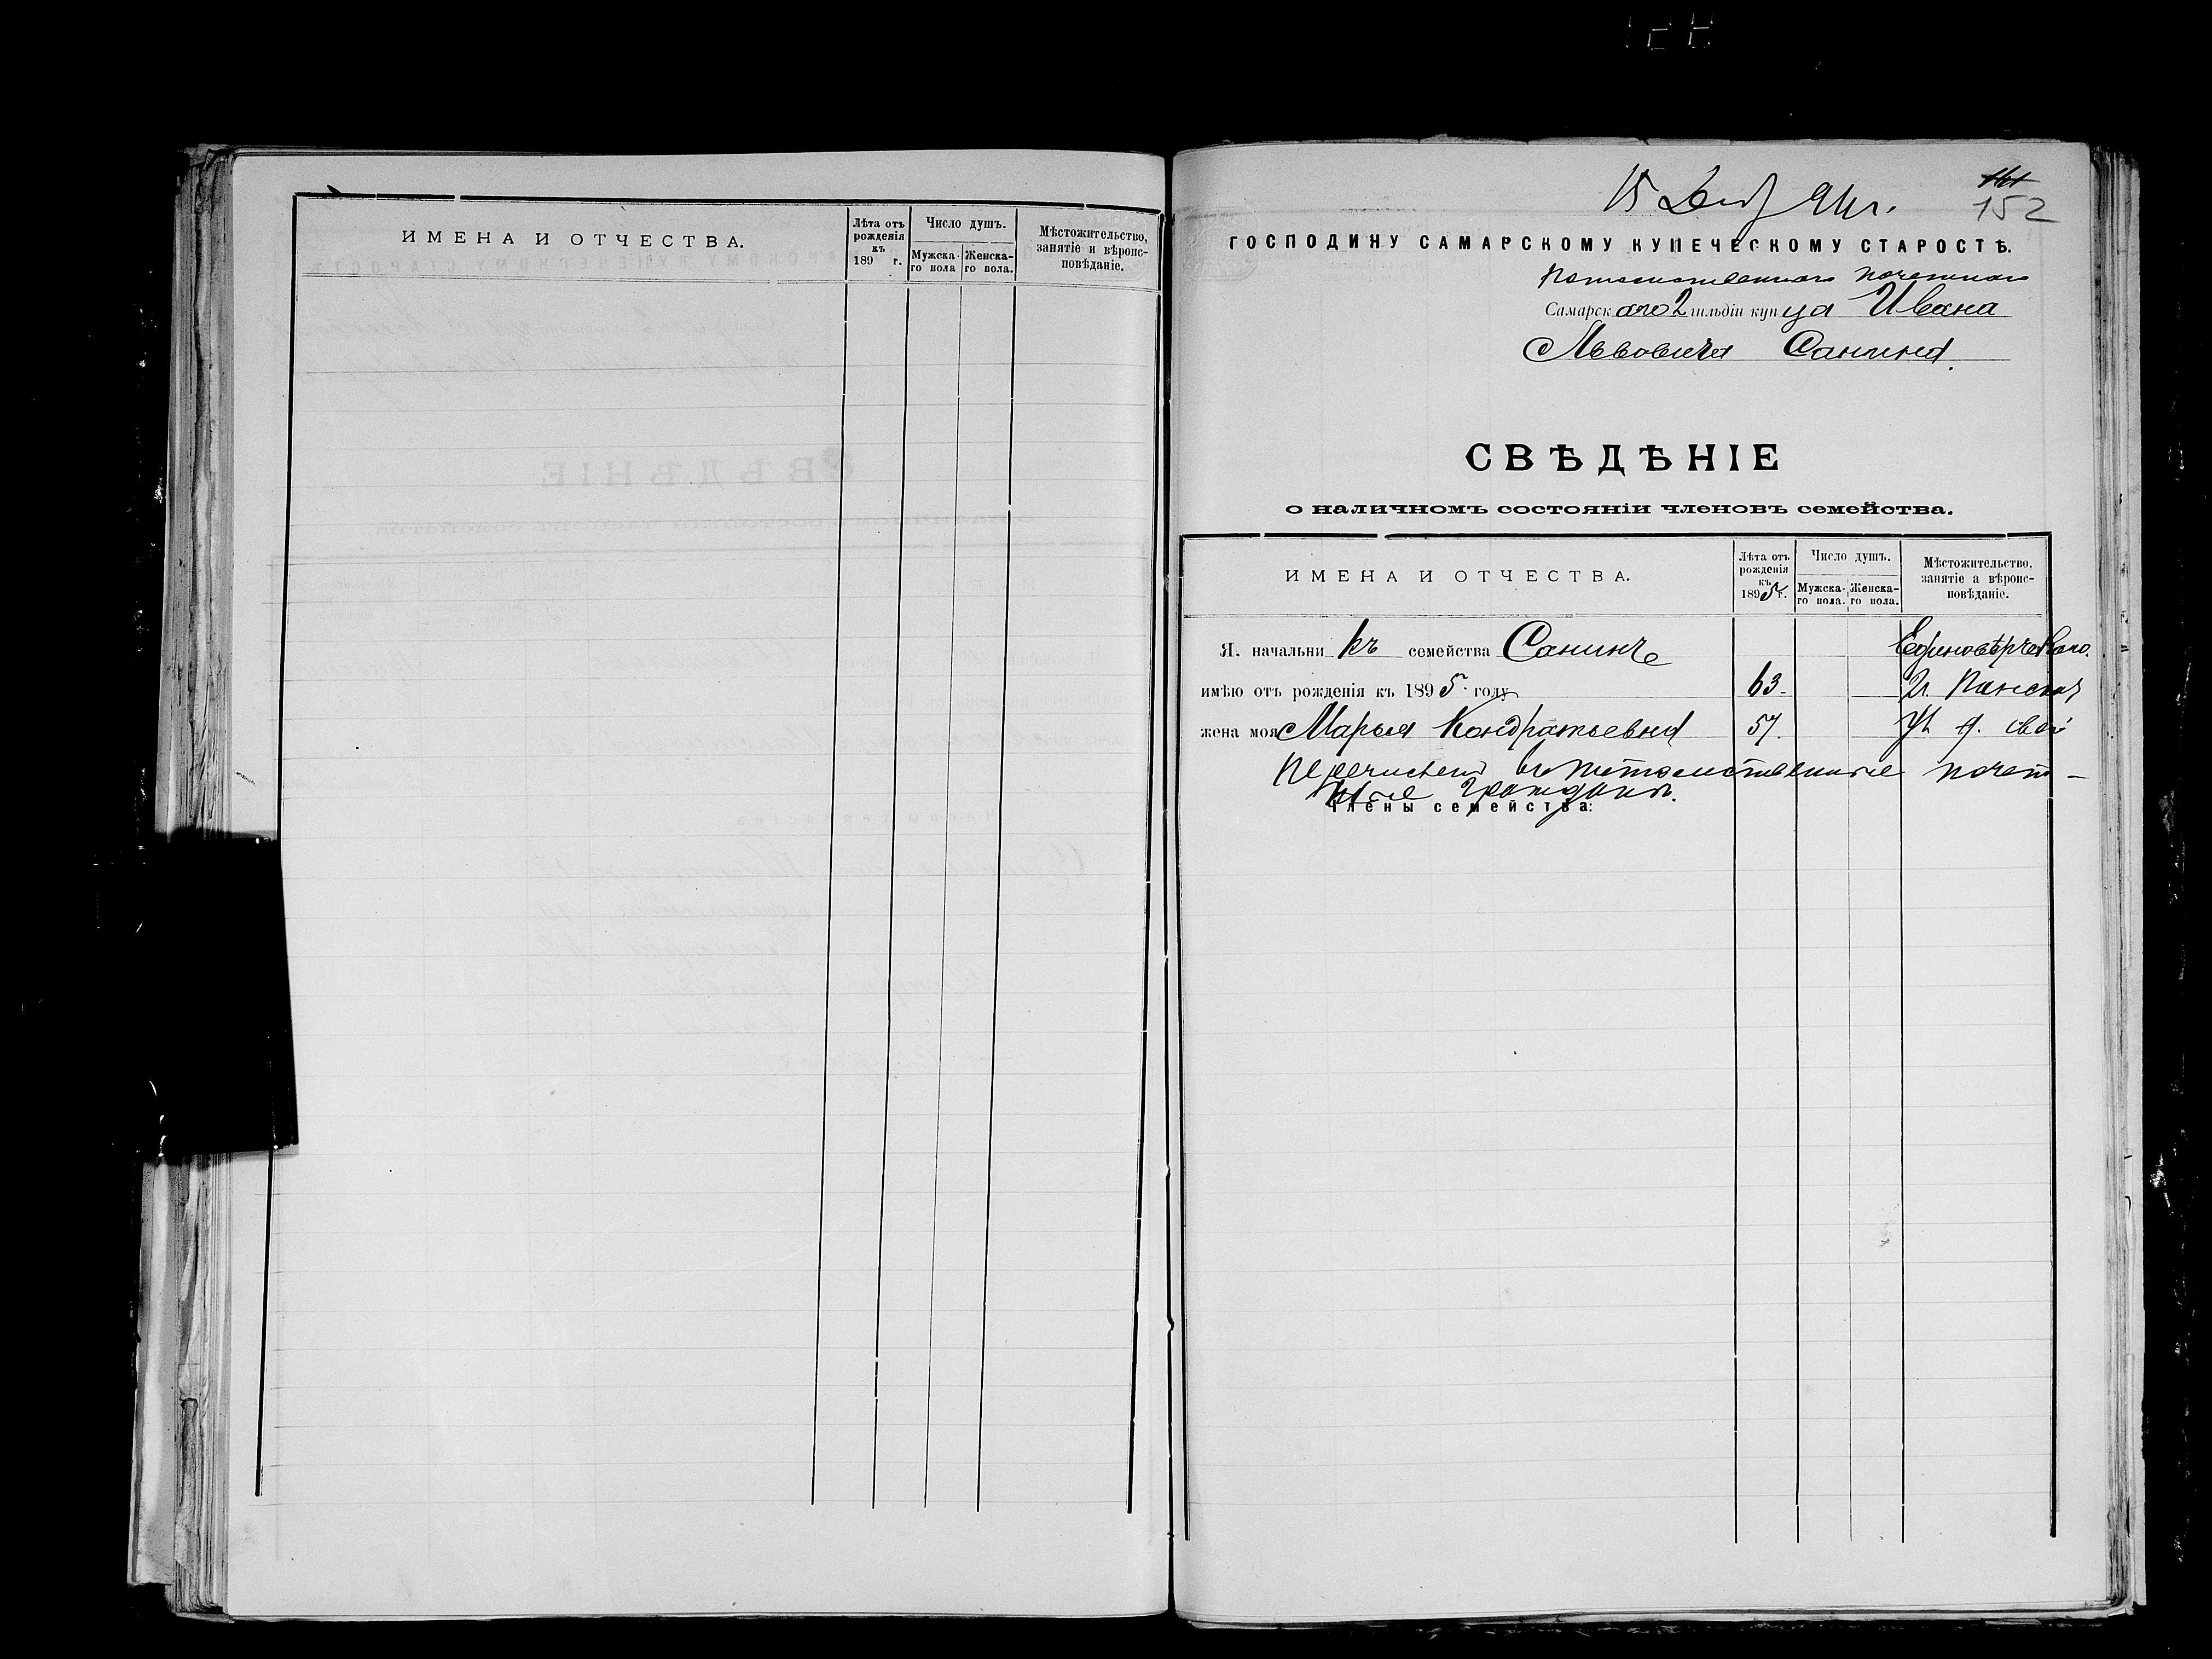 ИМЕНА И ОТЧЕСТВА.
Лѣта отъ рожденія къ 189 г.
Число душъ.
Мужска-го пола
Женска-го пола.
Мѣстожительство, занятіе и вѣроис-повѣданіе.
15 94 г.
152
ГОСПОДИНУ САМАРСКОМУ КУПЕЧЕСКОМУ СТАРОСТѢ.
Потомственнаго почетнаго
Самарскаго 2 гильдіи купца Ивана
Львовича Санина.
СВѢДѢНІЕ
о наличномъ состояніи членовъ семейства.
ИМЕНА И ОТЧЕСТВА.
Лѣта отъ рожденія къ 1895 г.
Число душъ.
Мужска-го пола.
Женска-го пола.
Мѣстожительство, занятіе а вѣроис-повѣданіе.
Я. начальникъ семейства Санинъ Единовѣрческаго.
имѣю отъ рожденія къ 1895 году 63.
жена моя Марья Кондратьевна 57.
перечислены въ потомственные почет-
ные граждане.
Члены семейства: